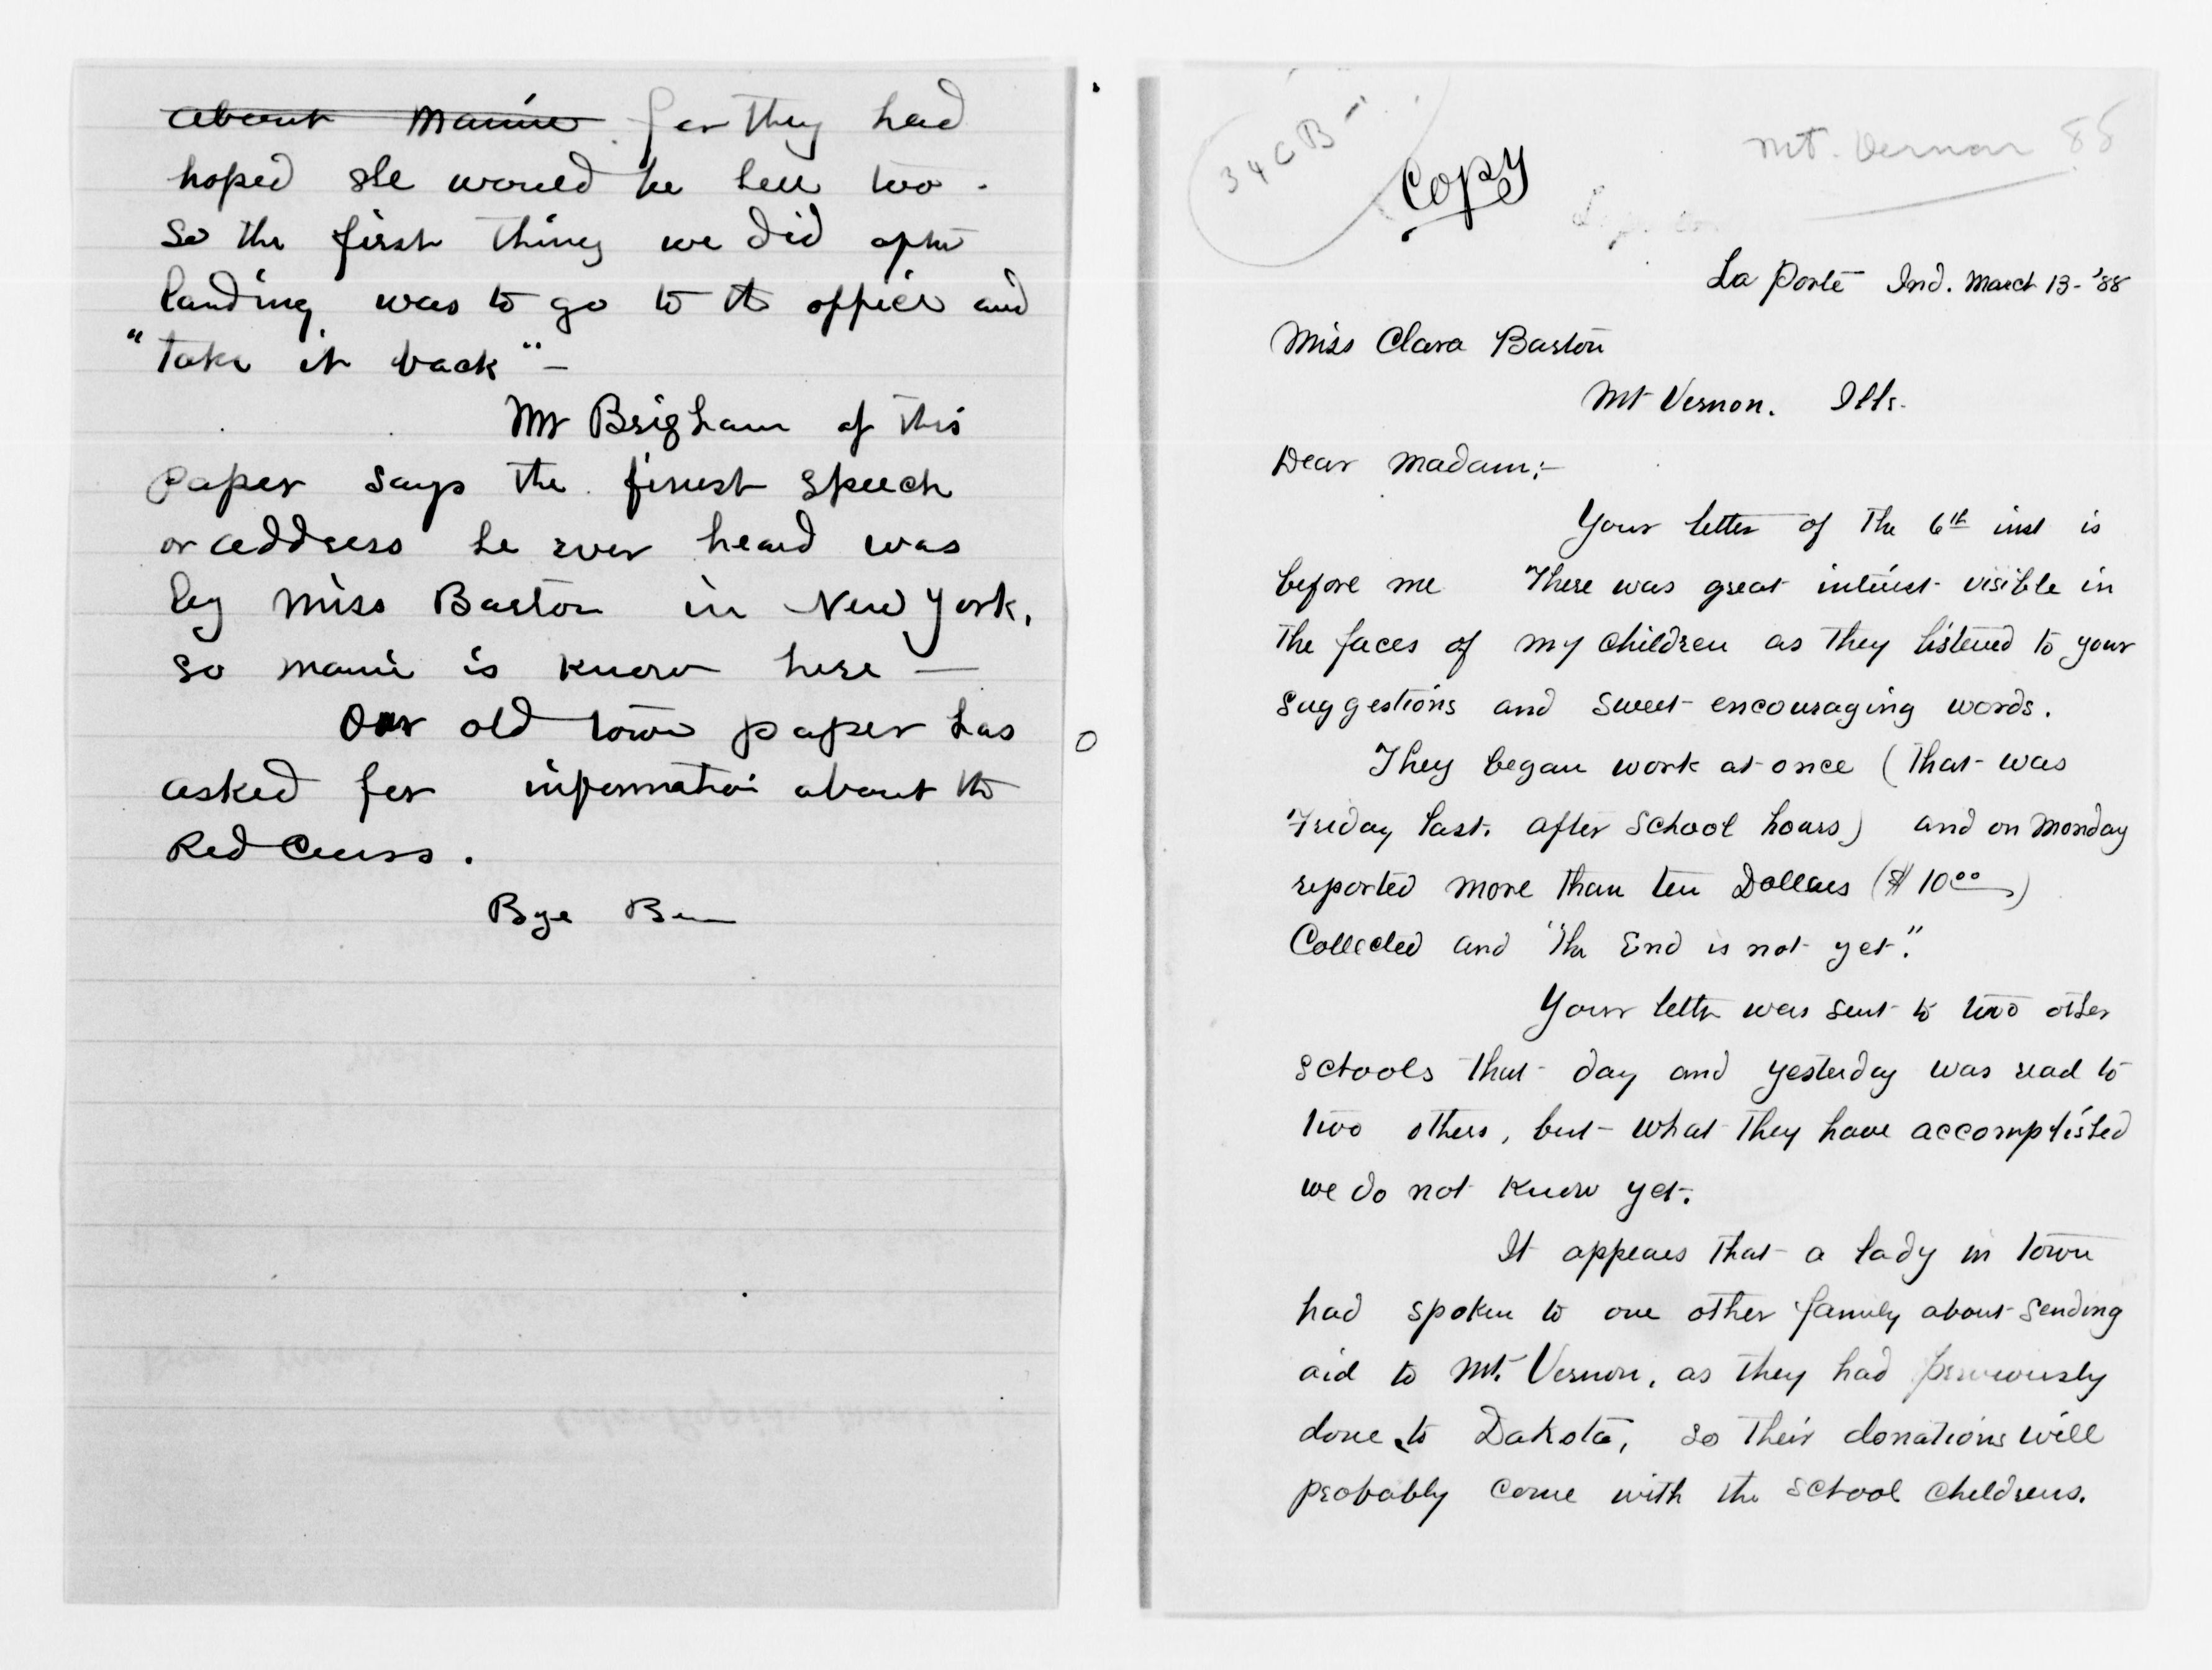 about Mamie for they had
hoped she would be here too.
So the first thing we did after
landing was to go to the office and
"take it back" –
Mr Brigham of this
paper says the finest speech
or address he ever heard was
by Miss Barton in New York.
So Mamie is known here —
Our old town paper has
asked for information about the
Red Cross.
Bye Ben
Mt. Vernon 88
34 C B
Copy
La Porte Ind. March 13 - '88
Miss Clara Barton
Mt Vernon. Ills.
Dear Madam:–
Your letter of the 6th inst is
before me There was great interest visible in
the faces of my children as they listened to your
suggestions and sweet encouraging words.
They began work at once (that was
Friday last. after school hours) and on Monday
reported more than ten Dollars ($10 00)
Collected and "The End is not yet."
Your letter was sent to two other
schools that day and yesterday was read to
two others, but what they have accomplished
we do not know yet.
It appears that a lady in town
had spoken to one other family about sending
aid to Mt. Vernon, as they had previously
done to Dakota, so their donations will
probably come with the school childrens.